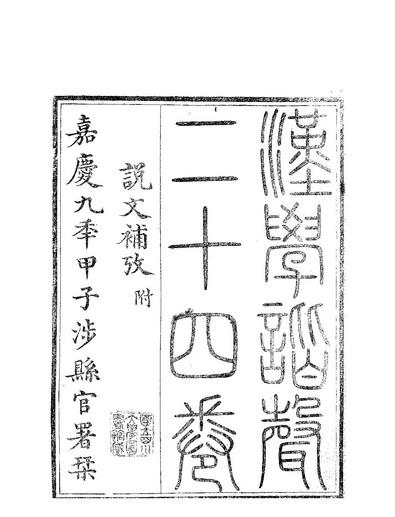 漢學諧聲
二十四卷
説文補攷附
嘉慶九秊甲子涉縣官署栞